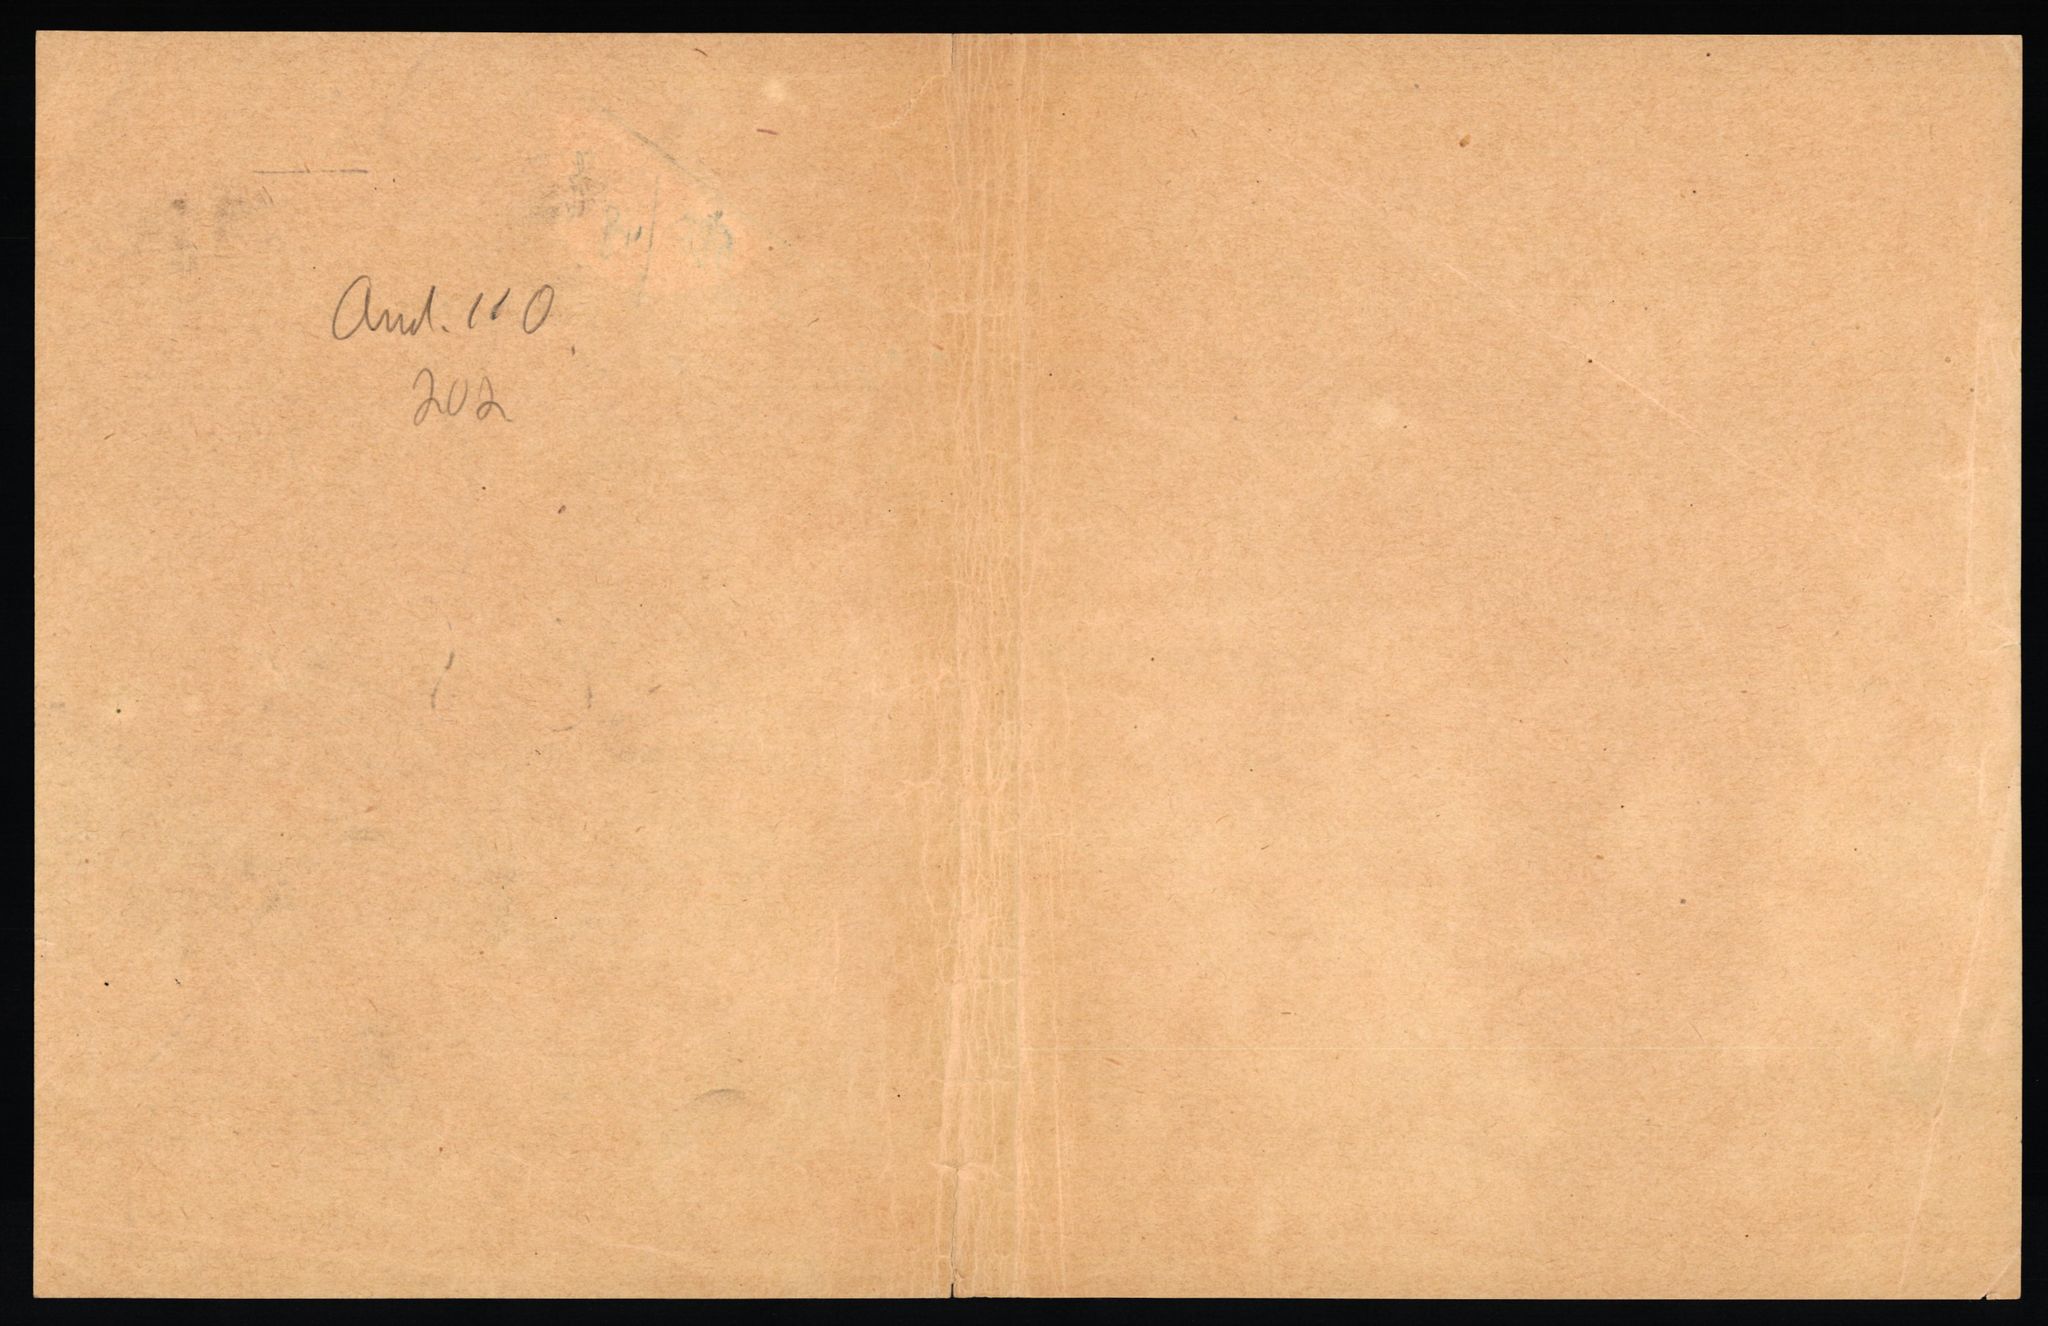 And. 110
202